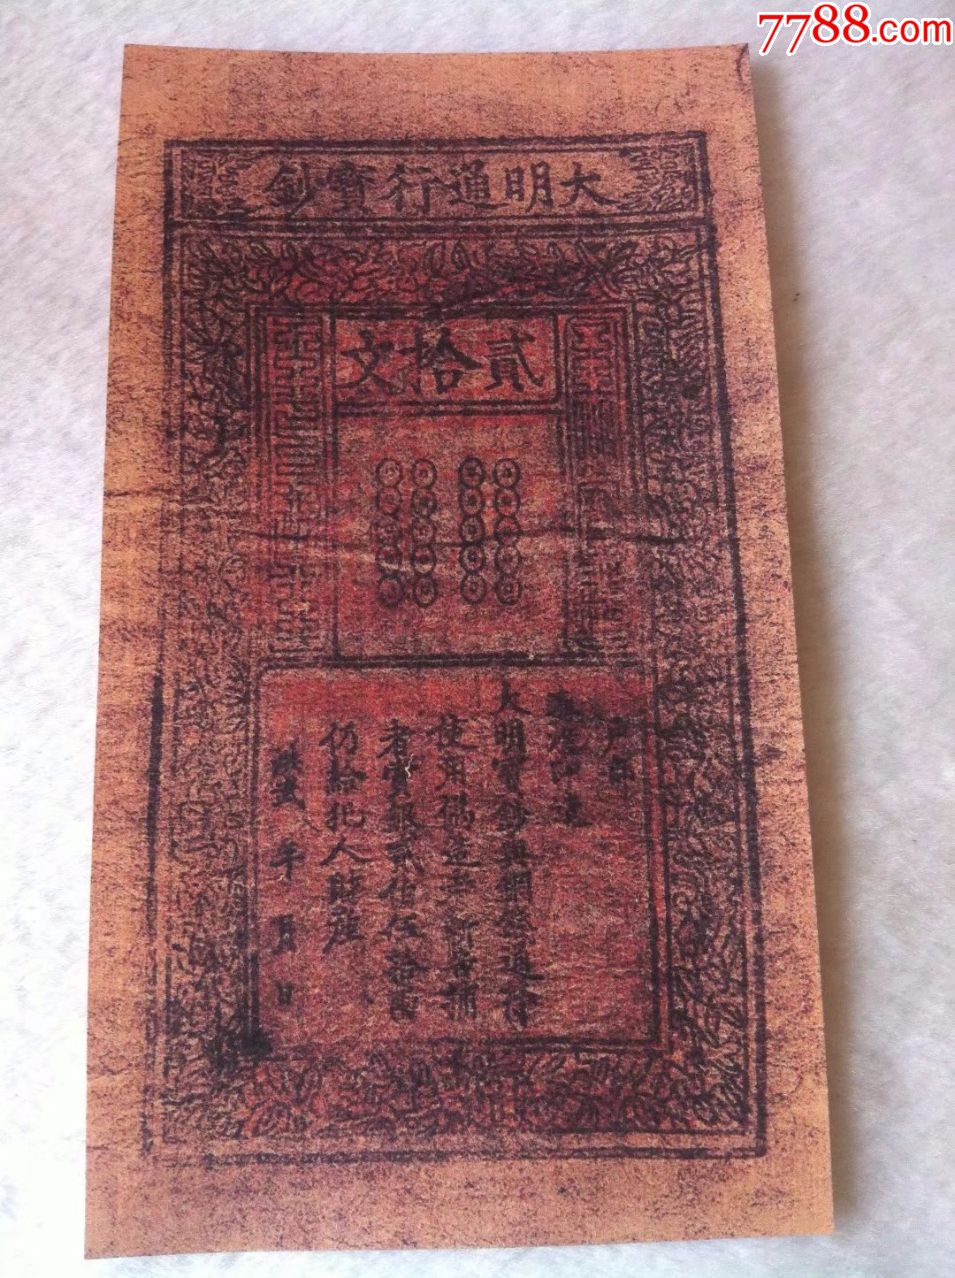 7788.com
大明通行寶鈔
貳拾文
戶部
奏准印造
大明寶鈔與銅錢通行
使用偽造者斬告捕
者賞銀貳伯伍拾兩
仍給犯人財產
洪武 年 月 日